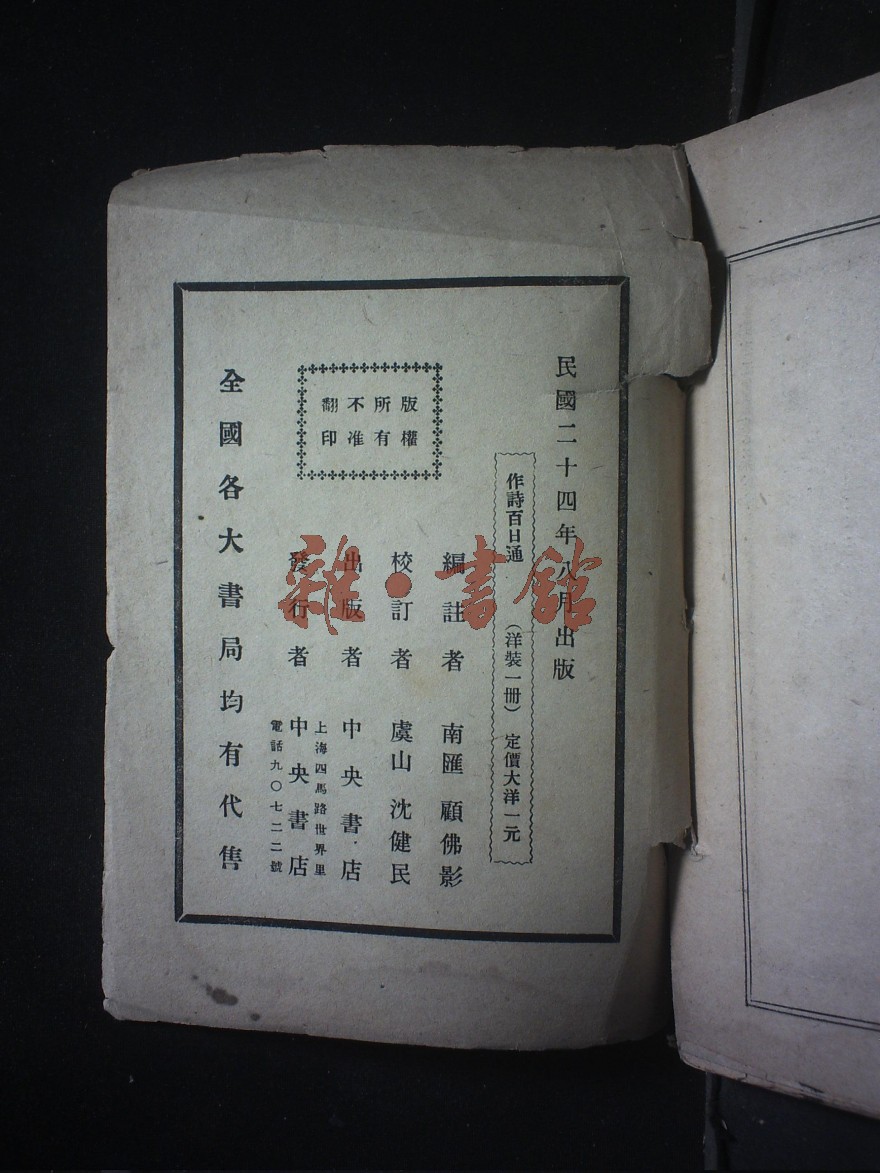 民國二十四年八月出版
作詩百日通 (洋裝一冊) 定價大洋一元
編註者 南匯 顧佛影
校訂者 虞山 沈健民
出版者 中央書店
上海四馬路世界里
發行者 中央書店
電話九〇七二二號
版權
所有
不准
翻印
全國各大書局均有代售
雜·書館